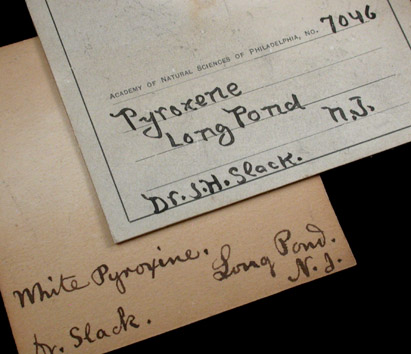 ACADEMY OF NATURAL SCIENCES OF PHILADELPHIA, NO. 7046
Pyroxene
Long Pond N.J.
Dr. J.H. Slack.
White Pyroxine. Long Pond.
N.J.
Dr. Slack.